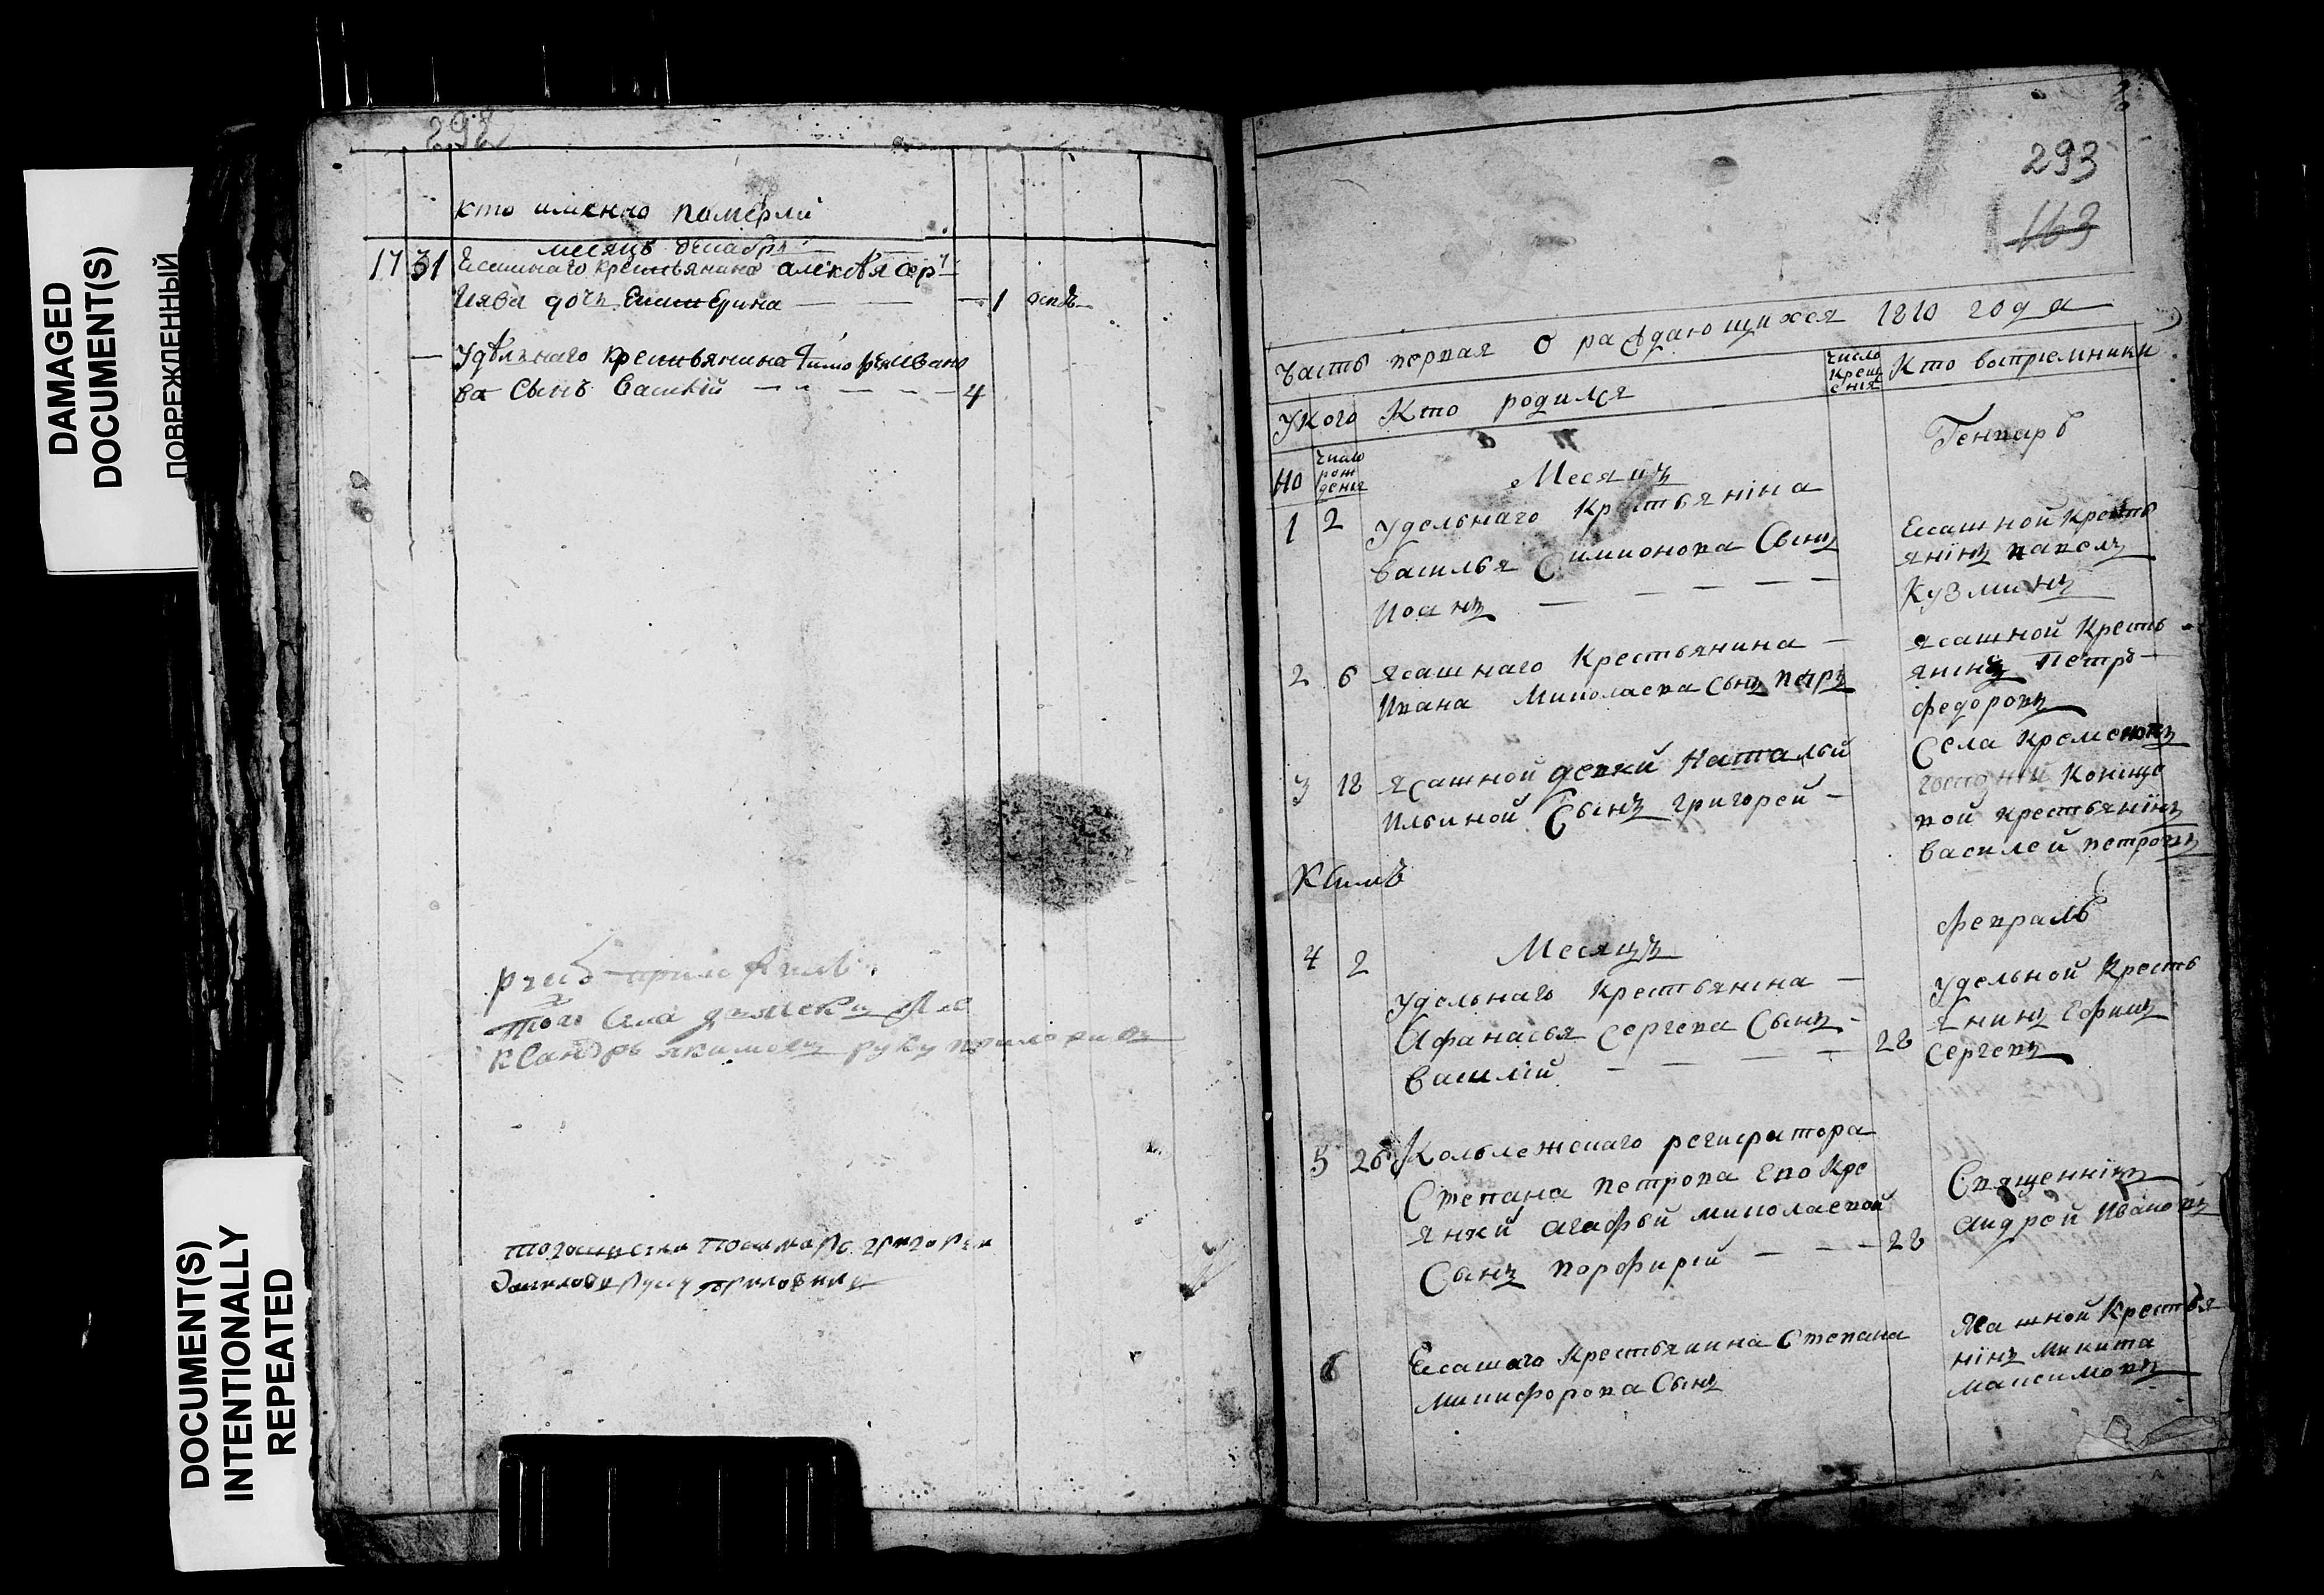 DAMAGED
DOCUMENT(S)
ПОВРЕЖДЕННЫЙ
DOCUMENT(S)
INTENTIONALLY
REPEATED
292
кто именно померли
месяцъ декабрь
17 31 Есашнаго крестьянина алексѣя сер
гиева дочь Екатерина — — — 1 оспѣ
— Удѣльнаго крестьянина тимофея Ивано
ва Сынъ Василий — — — 4
руку приложилъ
того села
ксандръ якимовъ руку приложилъ
руку приложилъ
293
163
Часть первая о раждающихся 1810 года
У кого Кто родился
число креще ния
Кто восприемники
но число рож дения
Месяцъ
Генварь
1 2 Удельнаго Крестьяніна
Василья Симионова Сынъ
Иоанъ — — — —
Есашной кресть
янінъ павелъ
Кузминъ
2 6 Ясашнаго Крестьянина —
Ивана Миколаева Сынъ петръ
Ясашной Кресть
янинъ Петръ
федоровъ
3 18 Ясашной девки Натальи
Ильиной Сынъ григорей —
Села Кременокъ
вой крестьянінъ
василей петровъ
4 2 Месяцъ
февраль
Удельнаго Крестьянина —
Афанасья Сергева Сынъ —
Василій — — — 28
Удельной Кресть
янинъ Ефимъ
Сергевъ
5 26 Кольлежскаго региратора
Степана петрова Ево Кре
янки агафьи миколаевой
Сынъ порфирій — — — 28
Священнікъ
андрей Ивановъ
6 Есашаго Крестьянина Степана
микифорова Сынъ
Ясашной Крестья
нінъ микита
максимовъ